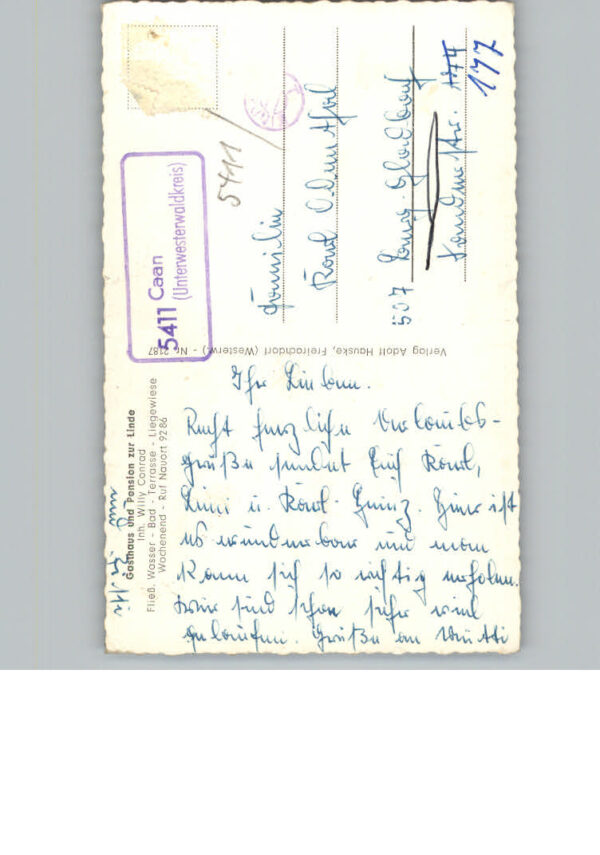 Gasthaus und Pension zur Linde
Inh. Willy Conrad
Fließ. Wasser - Bad - Terrasse - Liegewiese
Wochenend - Ruf Nauort 9286
Ihr Lieben.
Recht herzliche Urlaubs-
grüße sendet Euch Karl,
u. Karl-Heinz. Hier ist
es wunderbar und man
kann sich so richtig erholen.
Wir sind schon sehr viel
gelaufen. Grüße an Mutti
Verlag Adolf Hauske, Freirachdorf (Westerw.) - Nr. 2187
5411 Caan
(Unterwesterwaldkreis)
5411
Familie
Karl
507 Berg. Gladbach
177